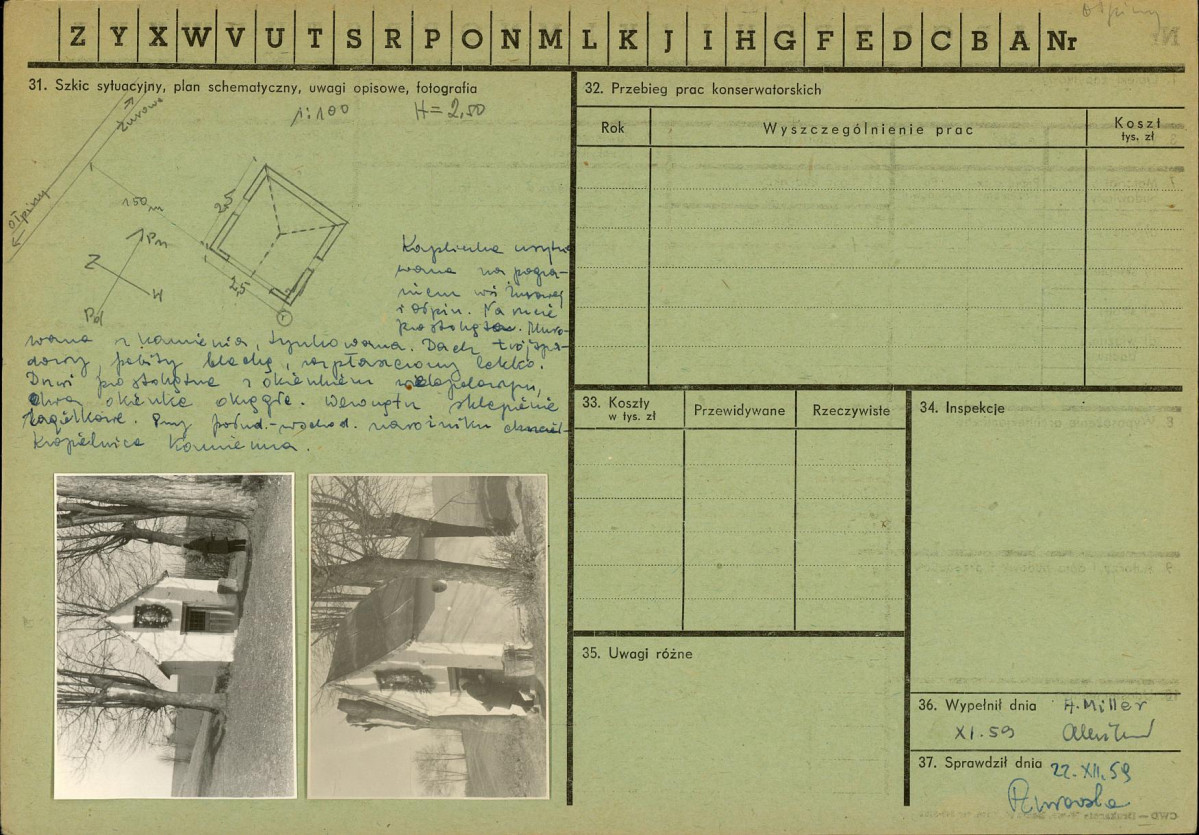 Ołpiny
Z Y X W V U T S R P O N M L K J I H G F E D C B A Nr
31. Szkic sytuacyjny, plan schematyczny, uwagi opisowe, fotografia
1:100 H = 2,50
Żurowa
Ołpiny
150 m
2,5
2,5
Pn
Z
W
Pd
Kapliczka usytu-
wana na pogra-
niczu wsi Żurowej
i Ołpin. Na rzucie
prostokąta. Muro-
wana z kamienia, tynkowana. Dach trójspa-
dowy, pobity blachą, rozpłaszczony lekko.
Drzwi prostokątne z okienkiem
dwa okienka okrągłe. Wewnątrz sklepienie
żagielkowe. Przy połud.-wschod. narożniku
kropielnica kamienna.
32. Przebieg prac konserwatorskich
Rok Wyszczególnienie prac Koszt
tys. zł
33. Koszty
w tys. zł
Przewidywane Rzeczywiste
34. Inspekcje
35. Uwagi różne
36. Wypełnił dnia H. Miller
XI. 59
37. Sprawdził dnia 22.XII.59